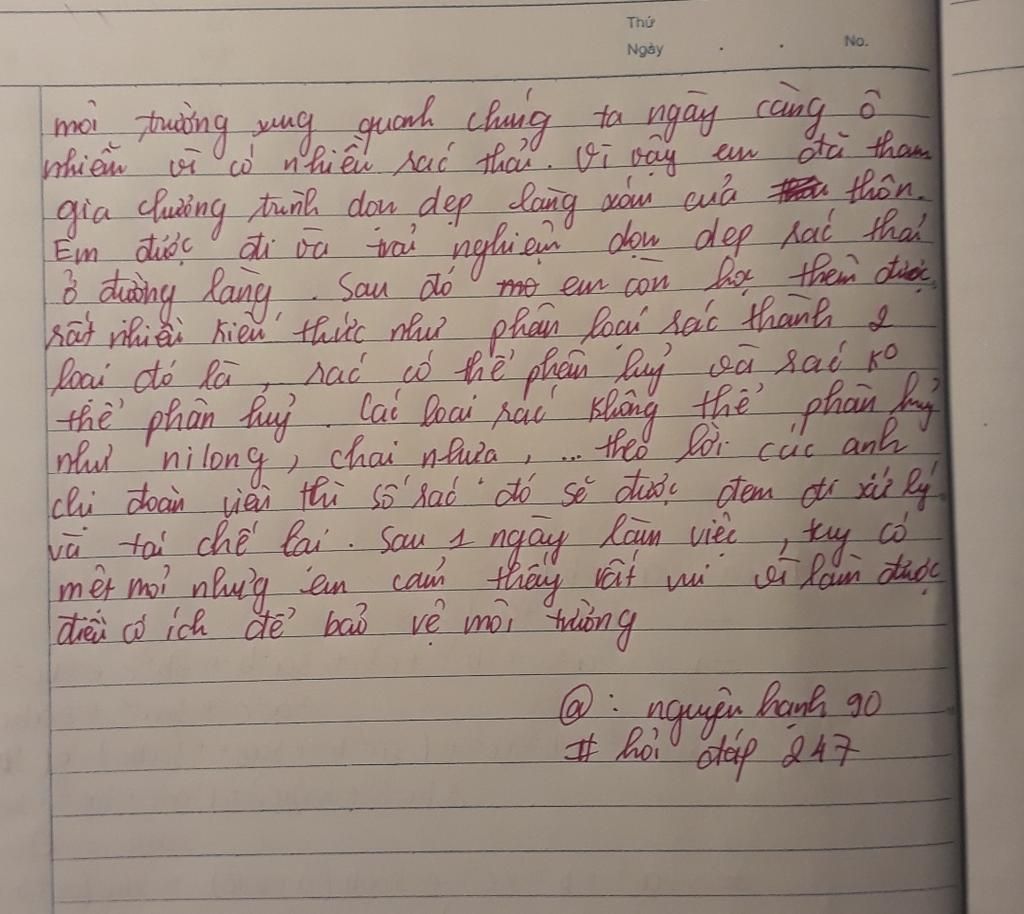 Thứ
Ngày . . No.
môi trường xung quanh chúng ta ngày càng ô
nhiễm vì có nhiều rác thải. Vì vậy em đã tham
gia chương trình dọn dẹp làng xóm của thôn.
Em được đi và trải nghiệm dọn dẹp rác thải
ở đường làng. Sau đó em còn học thêm được
rất nhiều kiến thức như phân loại rác thành 2
loại đó là, rác có thể phân huỷ và rác ko
thể phân huỷ. Các loại rác không thể phân huỷ
như nilong, chai nhựa, ... theo lời các anh
chị đoàn viên thì số rác đó sẽ được đem đi xử lý
và tái chế lại. Sau 1 ngày làm việc, tuy có
mệt mỏi nhưng em cảm thấy rất vui vì làm được
điều có ích để bảo vệ môi trường
@: nguyên hạnh 90
# hỏi đáp 247